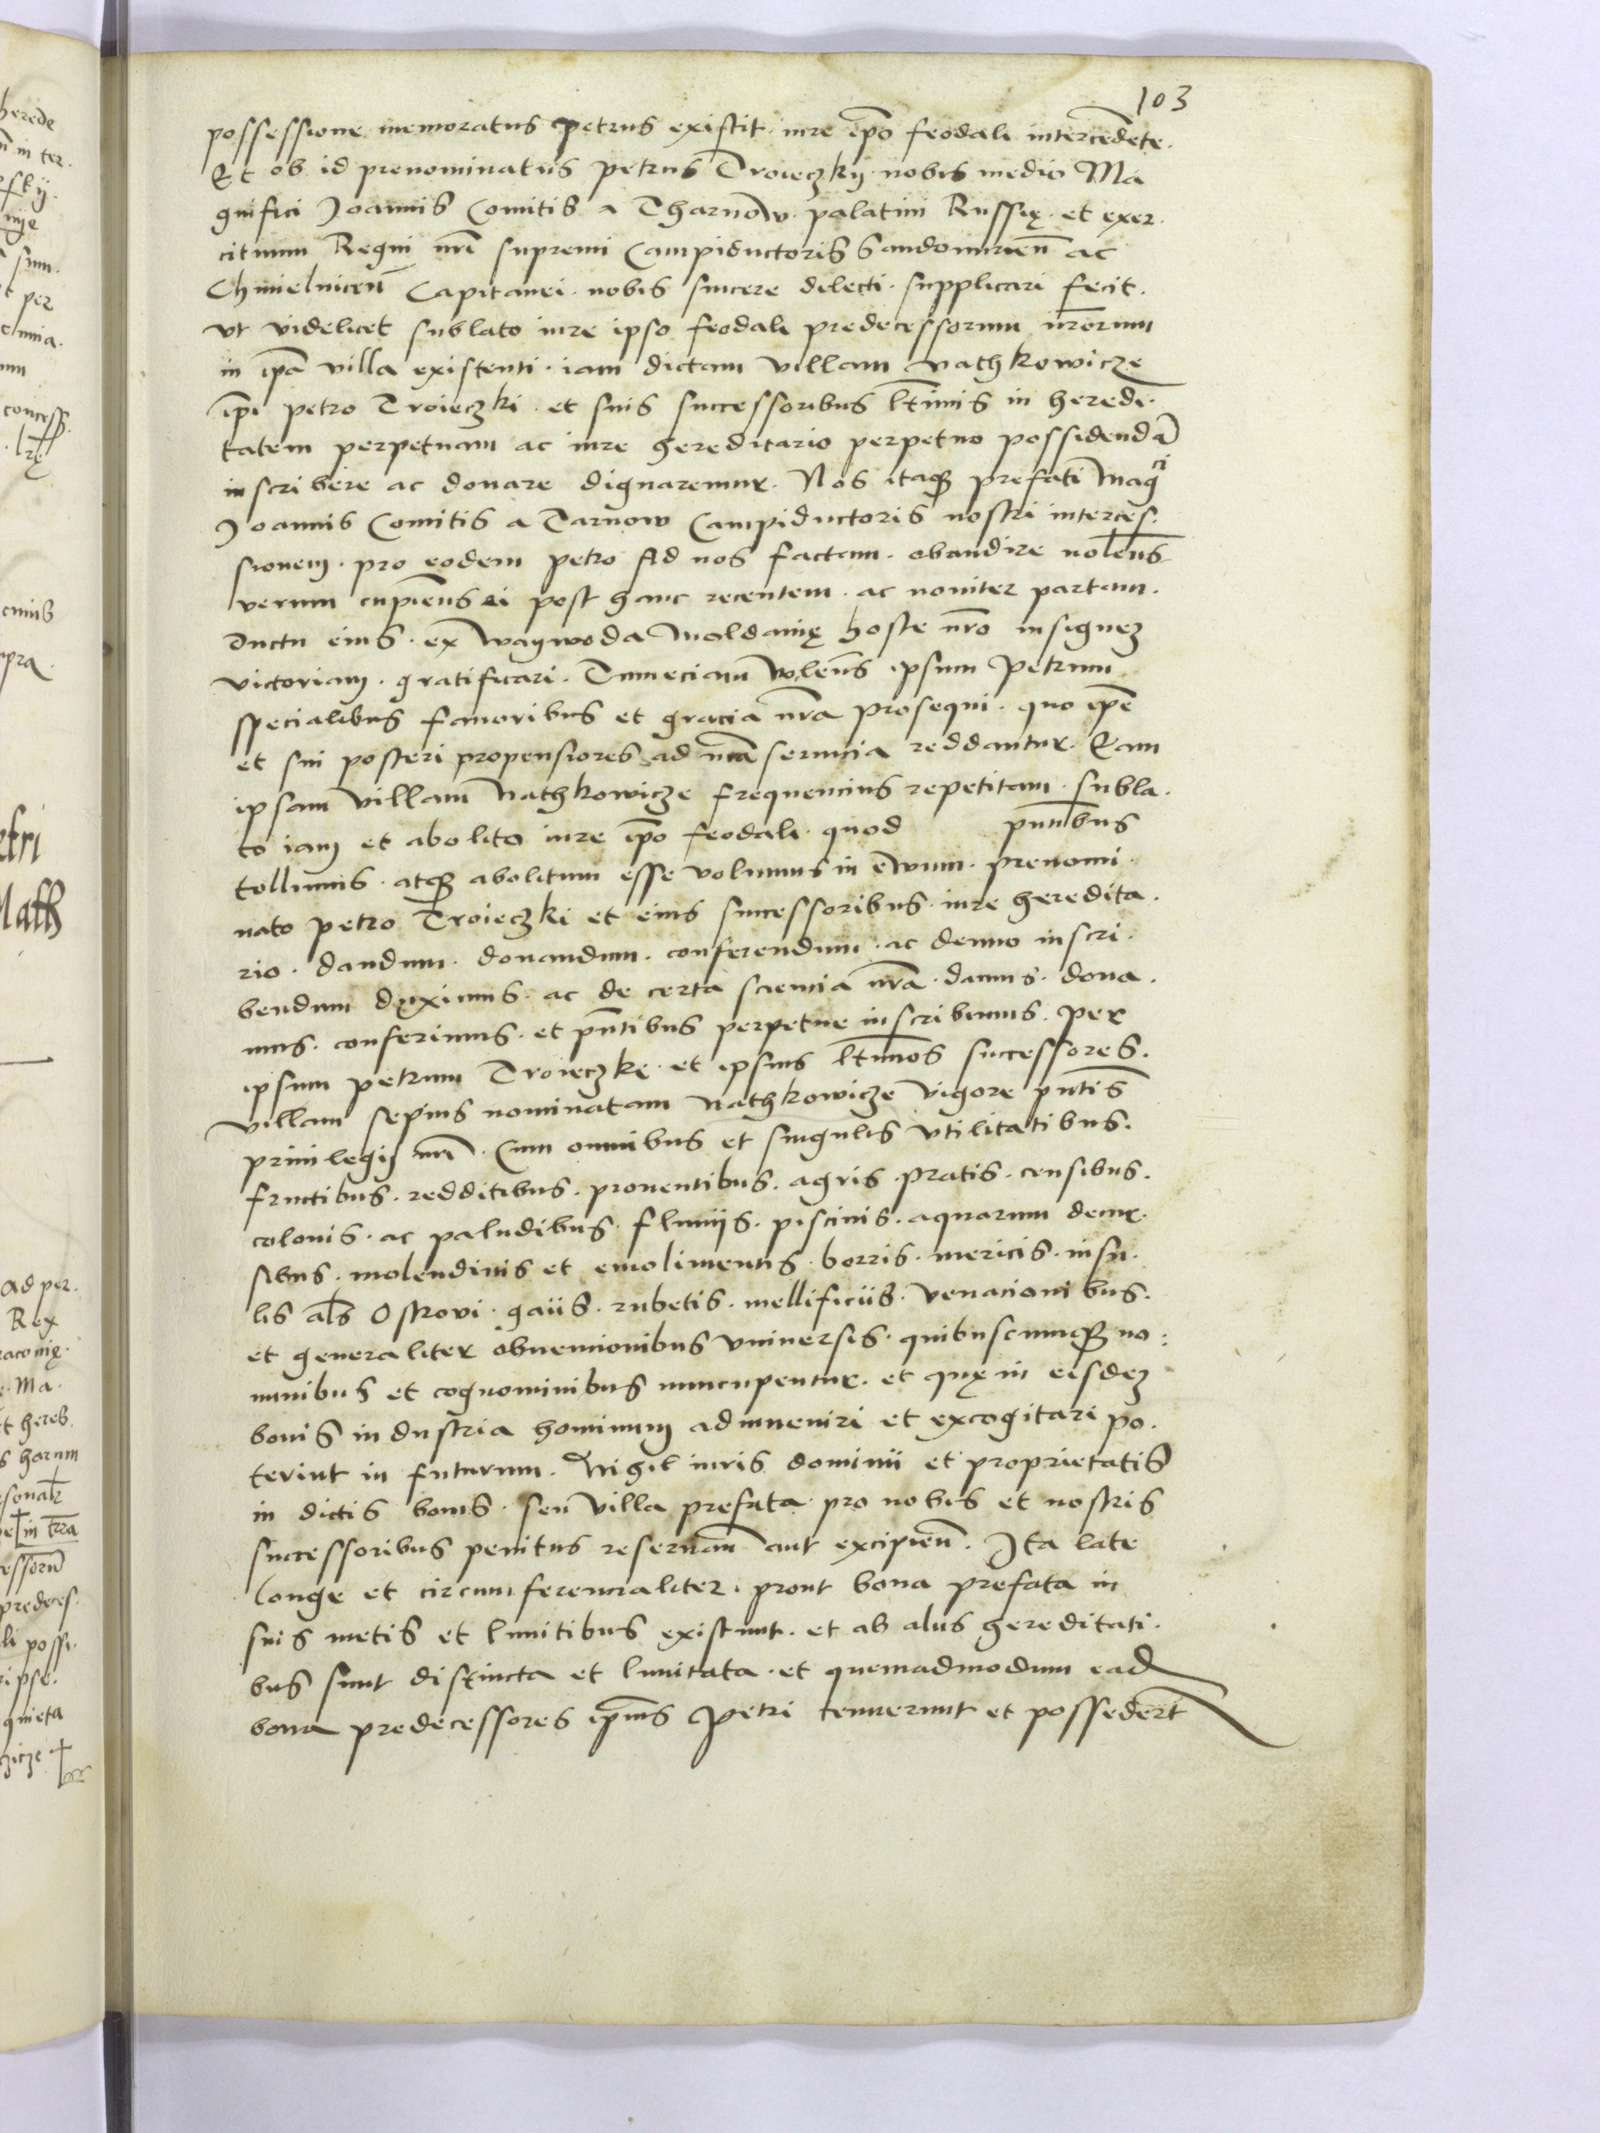 103
possessione memoratus Petrus existit iure ip̄o feodali intercedēte.
Et ob id prenominatus Petrus Troieczkij nobis medio Ma
gnifici Joannis Comitis a Tharnow. palatini Russię et exer.
cituum Regni nr̄i supremi Campiductoris Sandomirien̄ ac
Chmielnicen̄ Capitanei. nobis sincere dilecti. supplicari fecit.
vt videlicet sublato iure ipso feodali predecessorum nr̄orum
in ip̄a villa existenti. iam dictam villam Nathkowicze
ip̄i Petro Troieczki. et suis successoribus lt̄imis in heredi.
tatem perpetuam ac iure hereditario perpetuo possidendā
inscribere ac donare dignaremur. Nos itaqꝫ prefati Magci
Joannis Comitis a Tarnow Campiductoris nostri interces.
sionem. pro eodem Petro ad nos factam. obaudire nolen̄s
verum cupien̄s ei post hanc recentem. ac nouiter partam.
ductu eius. ex Waywoda Moldauię hoste nr̄o insignem
victoriam. gratificari. Tum eciam volen̄s ipsum Petrum
specialibus fauoribus et gracia nr̄a prosequi. quo ip̄e
et sui posteri propensiores ad nr̄a seruicia reddantur. Eam
ipsam villam Nathkowicze frequencius repetitam. subla.
to iam et abolito iure ip̄o feodali. quod pn̄tibus
tollimus. atqꝫ abolitum esse volumus in ewum. prenomi.
nato Petro Troieczki et eius successoribus. iure heredita.
rio. dandum. donandum. conferendum. ac denuo inscri.
bendum duximus. ac de certa sciencia nr̄a. damus. dona.
mus. conferimus. et pn̄tibus perpetue inscribimus. per
ipsum Petrum Troieczki. et ipsius lt̄imos successores.
villam sepius nominatam Nathkowicze vigore pn̄tis
priuilegij nr̄i. Cum omnibus et singulis vtilitatibus.
fructibus. redditibus. prouentibus. agris. pratis. censibus.
colonis. ac paludibus. fluuijs. piscinis. aquarum decur.
sibus. molendinis et emolimentis. borris. mericis. insu.
lis al̄s Ostrovi. gaiis. rubetis. mellificiis. venacionibus.
et generaliter obuencionibus vniuersis. quibuscumqꝫ no:
minibus et cognominibus nuncupentur. et quę in eisdem
bonis industria hominum adinueniri et excogitari po.
terint in futurum. Nihil iuris dominii et proprietatis
in dictis bonis. seu villa prefata. pro nobis et nostris
successoribus penitus reseruan̄ aut excipien̄. Ita late
longe et circumferencialiter. prout bona prefata in
suis metis et limitibus existunt. et ab aliis hereditati.
bus sunt distincta et limitata. et quemadmodum ead
bona predecessores ip̄ius Petri tenuerunt et possedert̄